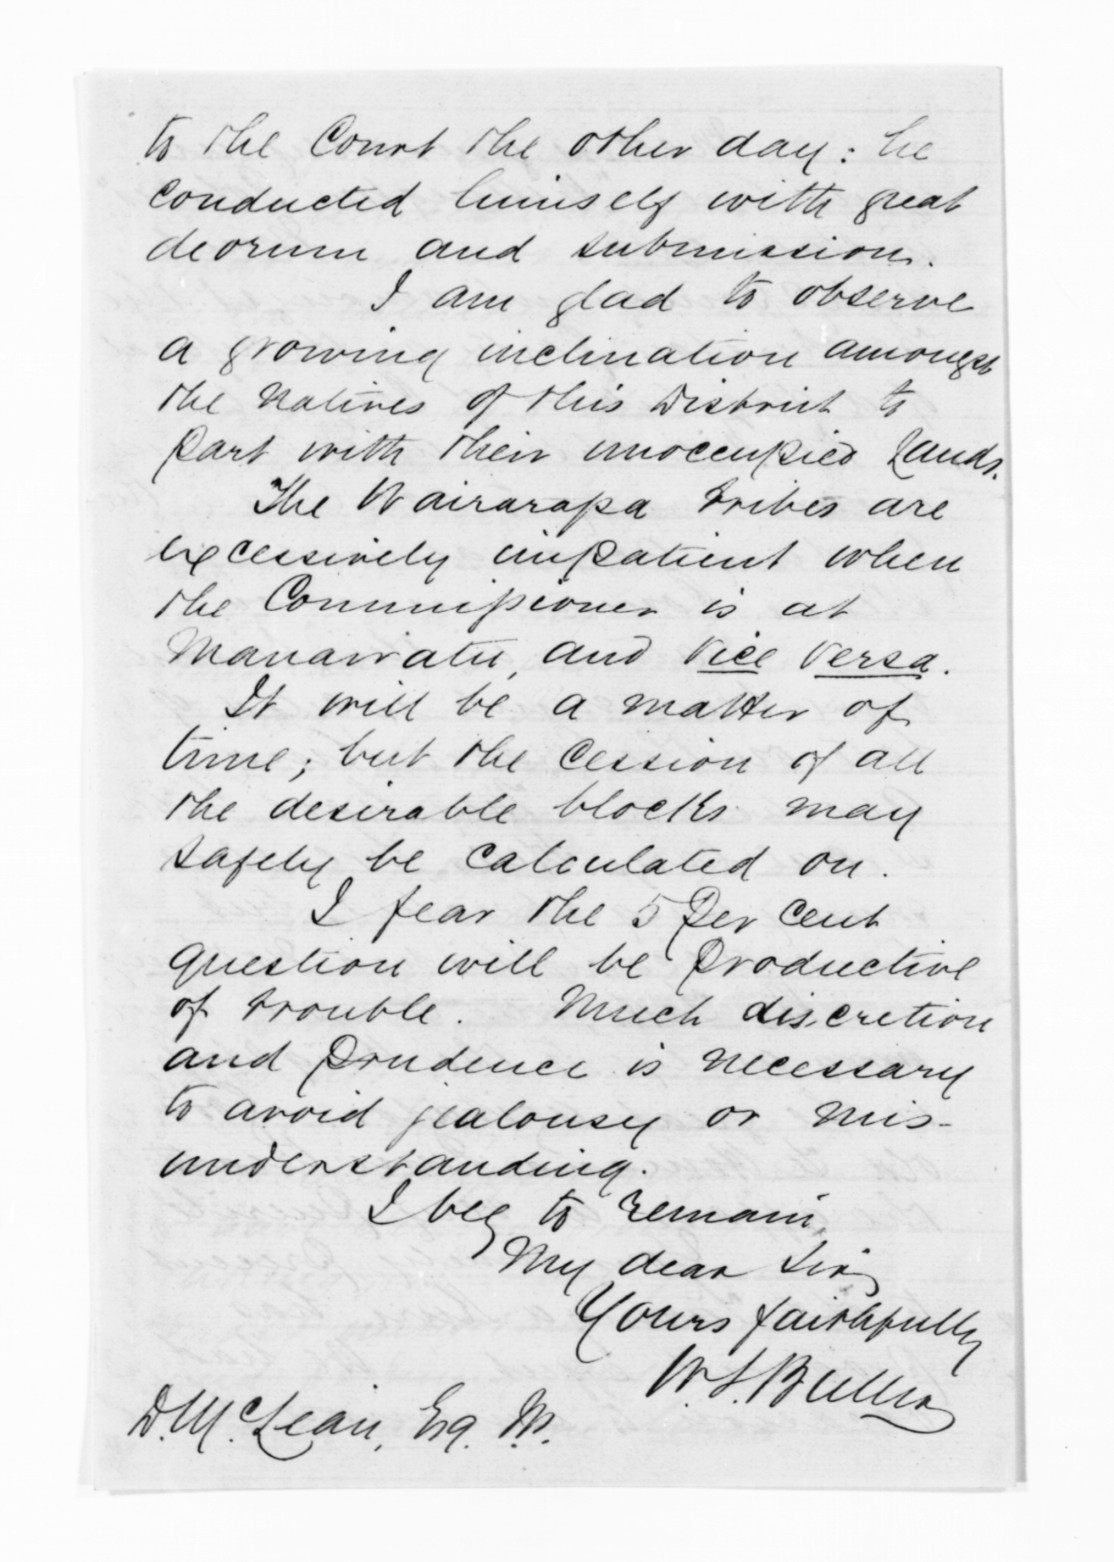 to the Court the other day: he
conducted himself with great
deorum and submission.
I am glad to observe
a growing inclination amongst
the Natives of this District to
part with their unoccupied Lands.
The Wairarapa tribes are
excessively impatient when
the Commissioner is at
Manawatu, and vice versa.
It will be a matter of
time; but the cession of all
the desirable blocks may
safely be calculated on.
I fear the 5 Per Cent
question will be productive
of trouble. Much discretion
and prudence is necessary
to avoid jealousy or mis-
understanding.
I beg to remain,
My dear Sir,
Yours faithfully
W. L. Buller
D. McLean, Esq.